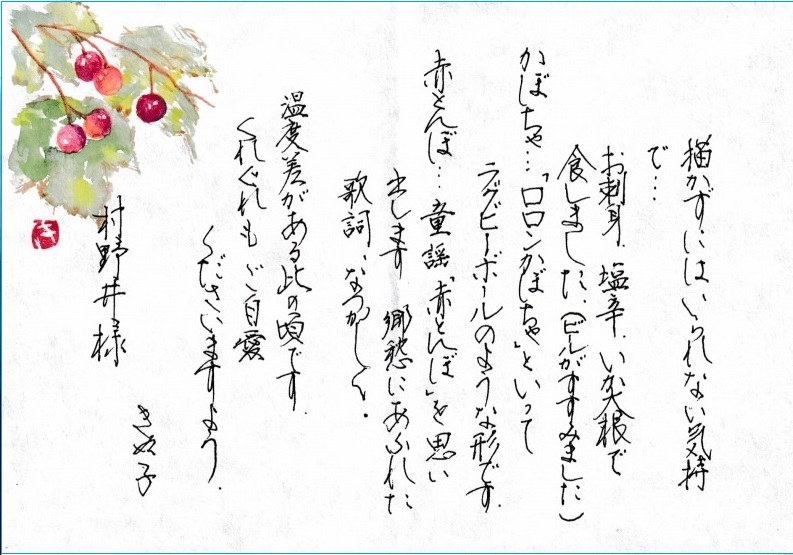 描かずにはいられない気持
で…
お刺身、塩辛、いか大根で
食しました、(ビールがすすみました)
かぼちゃ…「ロロンかぼちゃ」といって
ラグビーボールのような形です。
赤とんぼ…童謡「赤とんぼ」を思い
出します 郷愁にあふれた
歌詞、なつかしく。
温度差がある此の頃です。
くれぐれもご自愛
くださいますよう。
きぬ子
村野井様